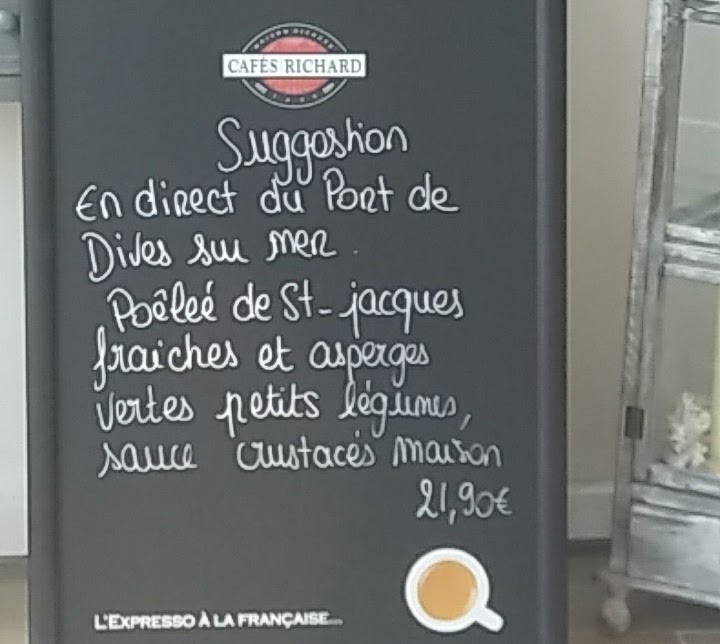 CAFÉS RICHARD
Suggestion
En direct du Port de
Dives sur mer.
Poêleé de St-jacques
fraiches et asperges
vertes petits légumes,
sauce crustacés maison
21,90€
L'EXPRESSO À LA FRANÇAISE...